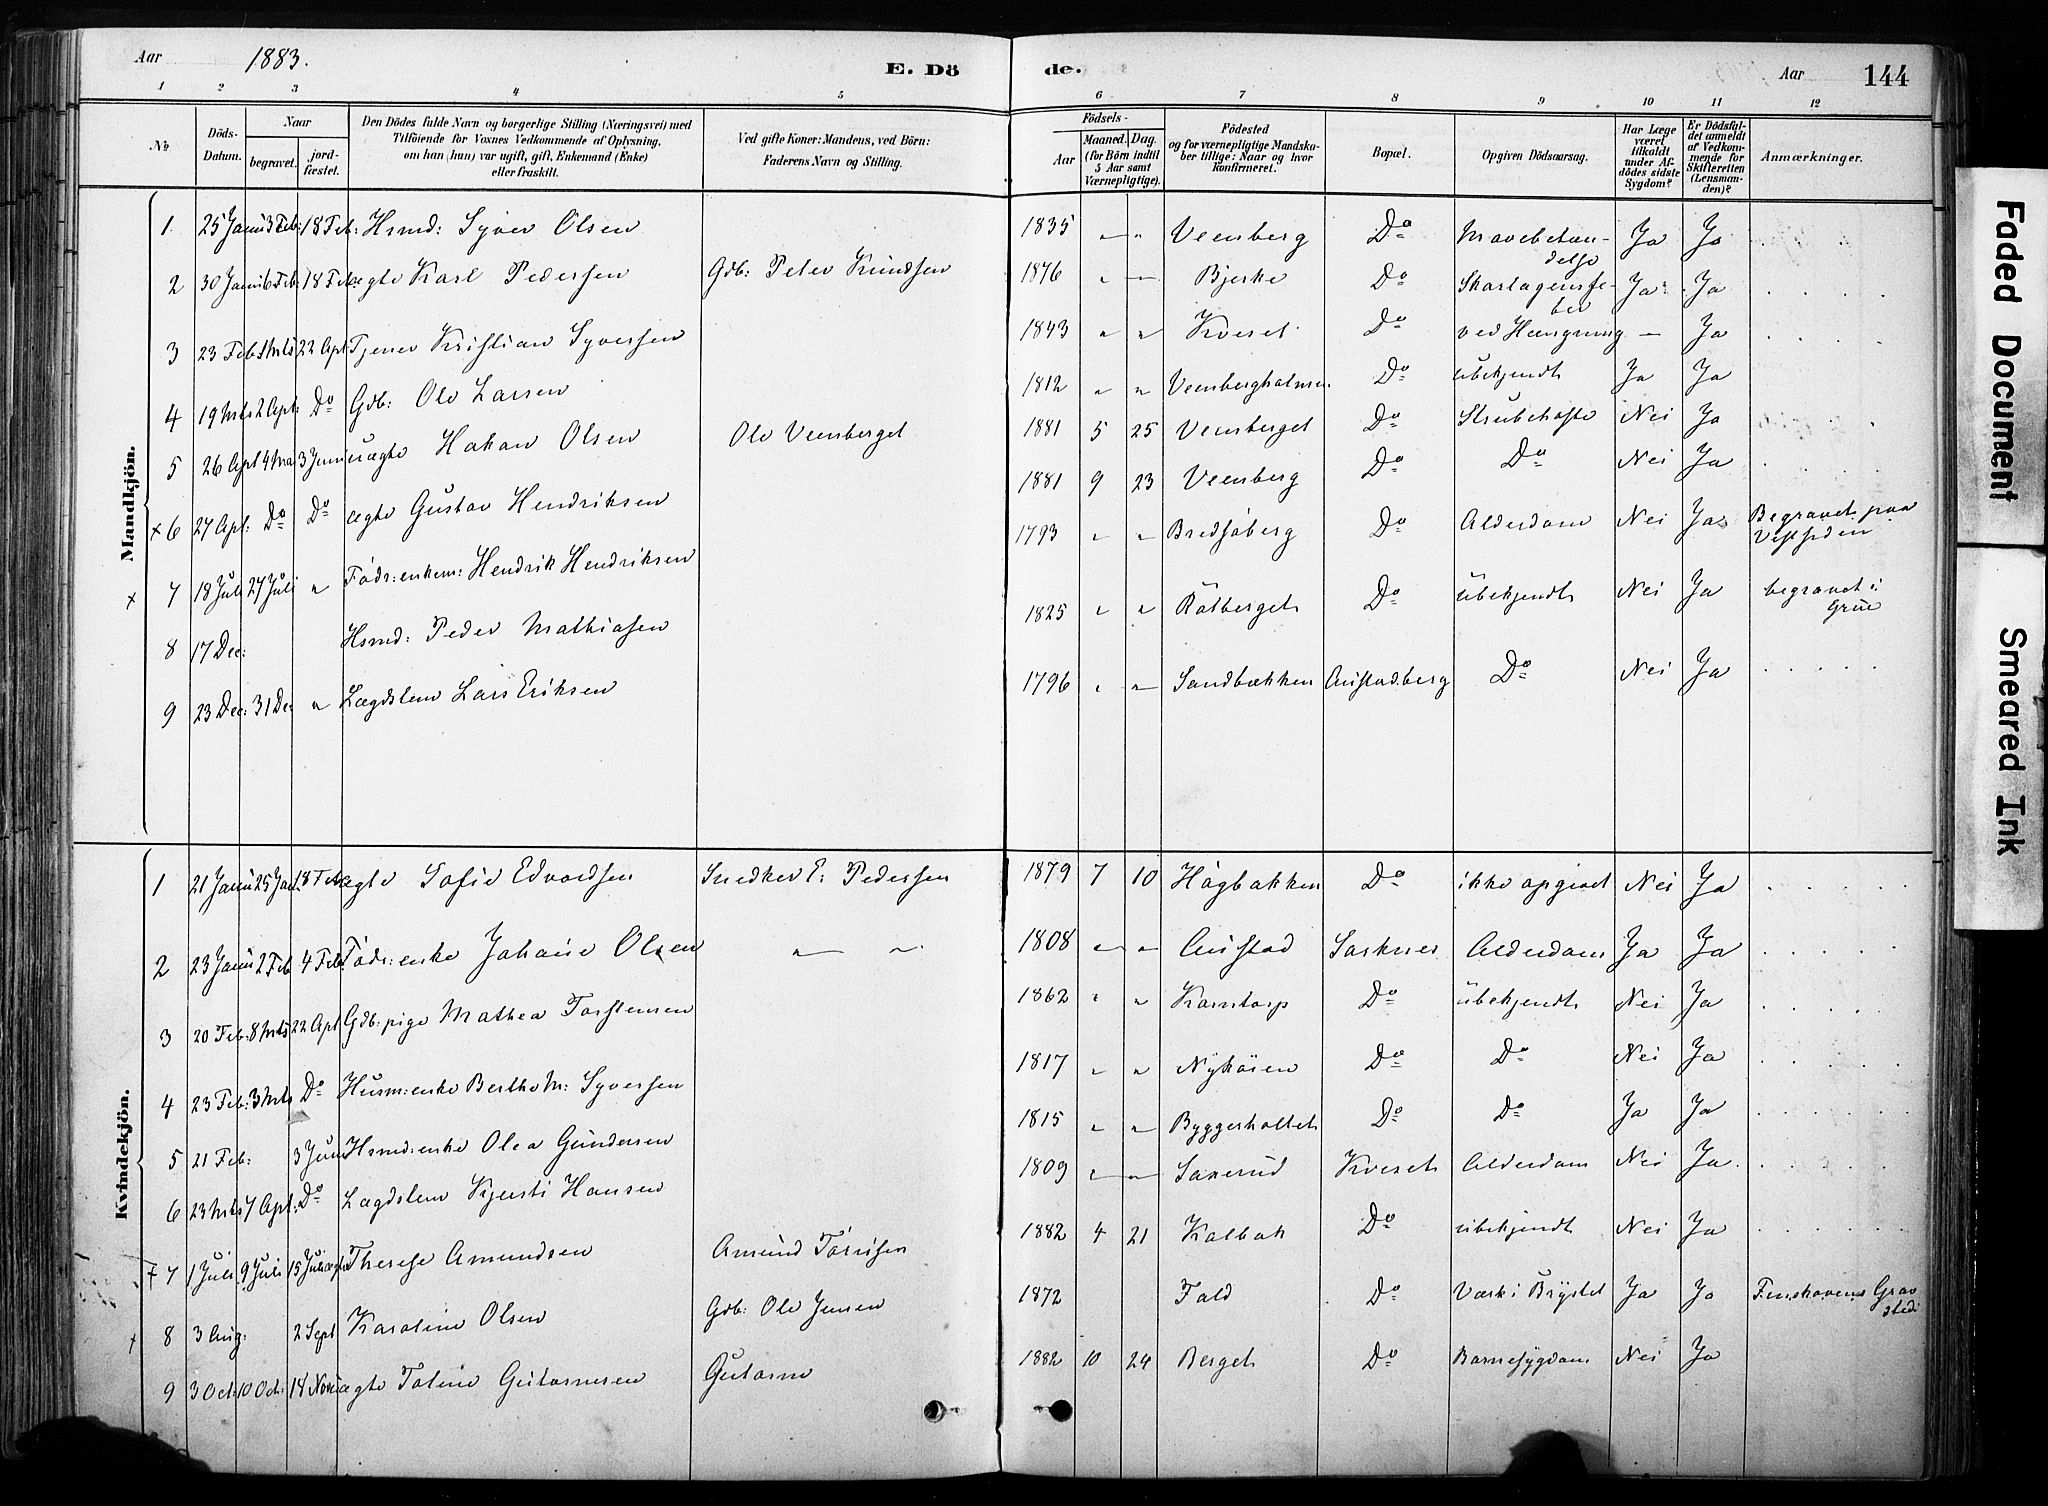 Aar 1883. E. Dö de. Aar 144
1 2 3 4 5 6 7 8 9 10 11 12
No
Döds-Datum.
Naar
begravet.
jord-fæstet.
Den Dödes fulde Navn og borgerlige Stilling (Næringsvei) med
Tilföiende for Voxnes Vedkommende af Oplysning,
om han (hun) var ugift, gift, Enkemand (Enke)
eller fraskilt.
Ved gifte Koner: Mandens, ved Börn:
Faderens Navn og Stilling.
Födsels-
Aar
Maaned. Dag.
(for Börn indtil
5 Aar samt
Værnepligtige).
Födested
og for værnepligtige Mandska-
ber tillige: Naar og hvor
konfirmeret.
Bopæl.
Opgiven Dödsaarsag.
Har Læge
været
tilkaldt
under Af-
dödes sidste
Sygdom?
Er Dödsfal-
det anmeldt
af Vedkom-
mende for
Skifteretten
(Lensman-
den)?
Anmærkninger.
Mandkjön.
1 25 Janu 3 Feb: 18 Feb: Hsmd: Syver Olsen 1835 " " Veenberg Do Mavebetæn-
delse Ja Ja
2 30 Janu 6 Feb: 18 Feb: ægte Karl Pedersen Gdb: Peter Knudsen 1876 " " Bjerke Do Skarlagensfe-
ber Ja Ja
3 23 Feb 1 Mts 22 Apl: Tjener Kristian Syversen 1843 " " Kveset Do ved Hængning — Ja
4 19 Mts 2 Apl: Do Gdb: Ole Larsen 1812 " " Veenbergholmen Do ubekjendt Ja Ja
5 26 Apl 4 Mai 3 Juni uægte Hakan Olsen Ole Veenberget 1881 5 25 Veenberget Do Strubehoste Nei Ja
x 6 27 Apl: Do Do ægte Gustav Hendriksen 1881 9 23 Veenberg Do Do Nei Ja
x 7 18 Juli 27 Juli " Födr: enkem: Hendrik Hendriksen 1793 " " Bredsjöberg Do Alderdom Nei Ja Begravet paa
Vestsiden
8 17 Dec: Hsmd: Peder Mathiasen 1825 " " Rötberget Do ubekjendt Nei Ja begravet i
Grue
9 23 Dec: 31 De: " Lægdslem Lars Eriksen 1796 " " Sandbækken Austadberg Do Nei Ja
Kvindekjön.
1 21 Janu 25 Jan 18 Feb ægte Sofie Edvardsen Snedker E: Pedersen 1879 7 10 Högbakken Do ikke opgivet Nei Ja
2 23 Janu 2 Feb 4 Feb: Födr: enke Johane Olsen " " 1808 " " Austad Sorknes Alderdom Ja Ja
3 20 Feb: 8 Mts 22 Apl Gdb: pige Mathea Torstensen 1862 " " Korntorp Do ubekjendt Nei Ja
4 23 Feb: 3 Mts Do Husm: enke Berthe M: Syversen 1817 " " Nyköien Do Do Nei Ja
5 21 Feb: 3 Juni Hsmd: enke Olea Gundersen 1815 " " Byggerholtet Do Do Ja Ja
6 23 Mts 7 Apl: Do Lægdslem Kjersti Hansen 1809 " " Saxerud Kveset Alderdom Nei Ja
7 1 Juli 9 Juli 15 Juli ægte Therese Amundsen Amund Torrisen 1882 4 21 Kalbak Do ubekjendt Nei Ja
8 3 Aug: 2 Sept Karoline Olsen Gdb: Ole Jensen 1872 Fald Do Værk i Brystet Ja Ja Finskovens Grav
sted
9 3 Oct: 10 Oct: 18 Nov: ægte Toline 1882 10 24 Berget Do Barnesygdom Nei Ja
Faded Document
Smeared Ink